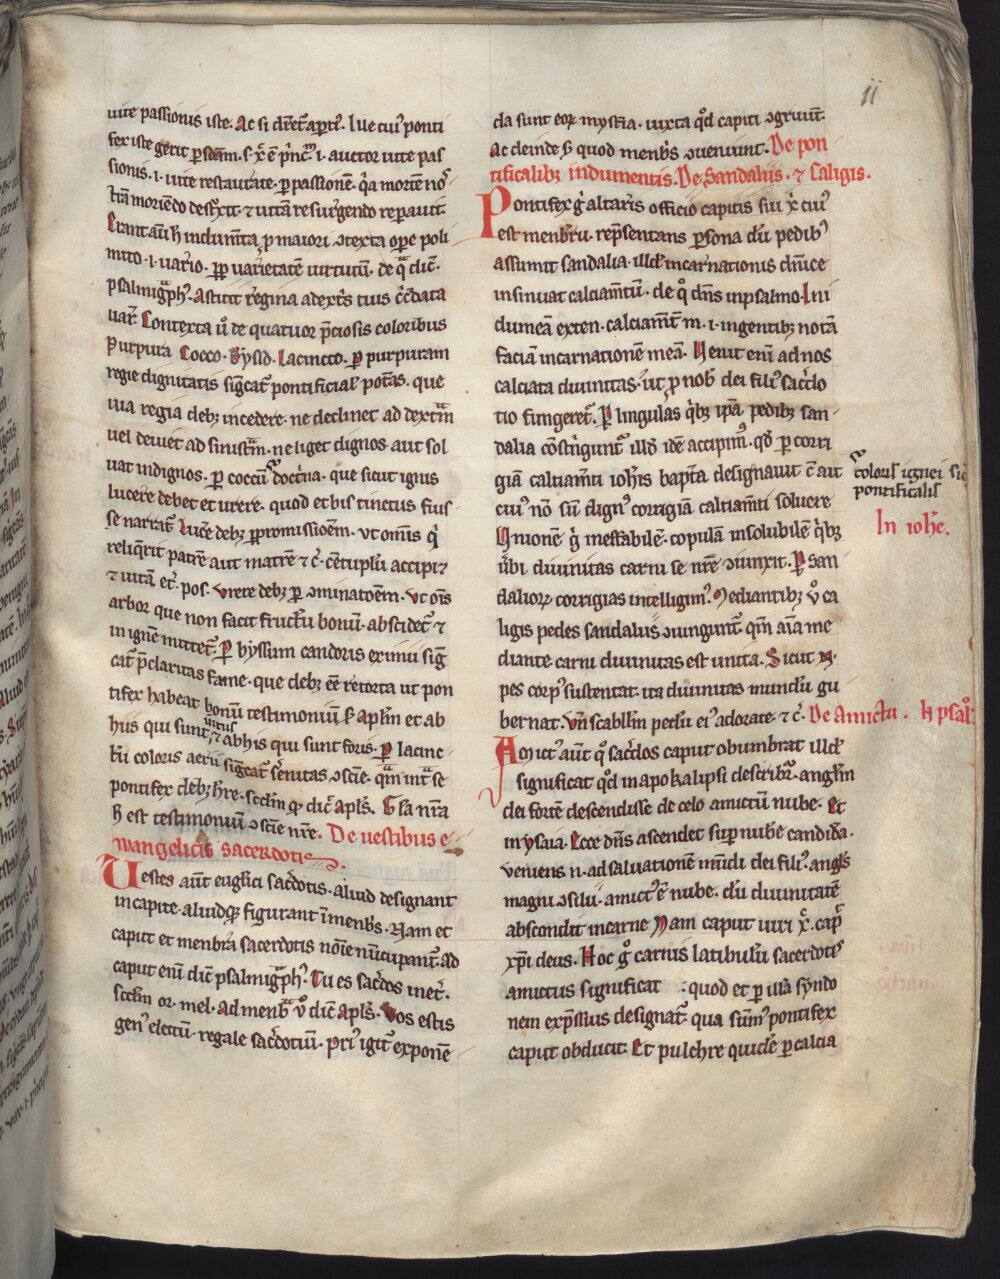 11
uite passionis iste. Ac si dr̄et ap̄tꝰ. Iste cuiꝰ ponti
fex iste gerit ꝑsonam. s. xp̄c ē p̄nc̄ .i. auctor uite pas
sionis .i. uite restaurate. ꝑ passionē. q̄a mortē nos
trā moriēdo destrͮxit. ⁊ uitā resurgendo reparauit.
Erant aūt h̄ indum̄ta ꝑ maiori ɔtexta oꝑe poli
mito .i. uario. ꝓp̄ uarietatē uirtutū. de qͣ dic̄.
psalmigͣphꝰ. Astitit regina a dextris tuis c̄c̄data
uar̄. Contexta ū de quatuor p̄ciosis coloribus
Purpura Cocco. Bysso. Iacincto. ꝑ purpuram
regie dignitatis siḡcat̄ pontificial̄ potās. que
uia regia debꝫ incedere. ne declinet ad dextrͣm
uel deuiet ad sinistͣm. ne liget dignos. aut sol
uat indignos. ꝑ coccū doctͥna. que sicut ignis
lucere debet et urere. quod et bis tinctus fuis
se narrat̄. Luc̄e debꝫ ꝑ promissionē. ut omis qͥ
reliqͥrit patrē aut matrē ⁊ c̄. cētuplū accipiꝫ
⁊ uitā et̄. pos. Vrere debꝫ ꝑ ɔminatoēm. Vt oīs
arbor que non facit fructū bonū. abscidet̄ ⁊
in ignē mittet̄. ꝑ byssum candoris eximii sig̅
cat̄ p̄claritas fame. que debꝫ ēē retorta ut pon
tifex habeat bonū testimoniū s̄ aplm̄ et ab
hus qui sunt intus ⁊ ab his qui sunt foris. ꝑ Iacinc
tū coloris aerii sig̅cat̄ s̄enitas ɔscīe. qͣm int̄ se
pontifex debꝫ hr̄e. scdm̄ qͦ dic̄ apl̄s. Gl̄a nr̄a
h̄ est testimoniū ɔscīe nr̄e. De uestibus e
wangelicis sacerdotis.
Uestes aūt eugl̄ici sac̄dotis. aliud designant
in capite. aliudqꝫ figurant ī menbͥs. Nam et
caput et menbra sacerdotis noīe nūcupant̄. Ad
caput enī dic̄ psalmigͣphꝰ. Tu es sac̄dos inet̄.
sc̄dm or. mel. Ad menbͣ ū dic̄ apl̄s. Vos estis
genꝰ electū. regale sac̄dotiū. priꝰ igit̄ exponē
da sunt eoꝝ mystīa. iuxta qd̄ capiti ɔgruūt.
Ac deinde s̄ quod menbͥs ɔueniunt. De pon
tificalibꝫ indumentis. De Sandaliis. ⁊ Caligis.
Pontifex gͥ altaris officio capitis sui xp̄c cuiꝰ
est menbrū. rep̄sentans ꝑsona dū pedibꝰ
assumit sandalia. illd̄ incarnationis dnīce
insinuat calciam̄tū. de qͦ dn̄s in psalmo. In i
dumeā exten. calciam̄t m. i. in gentibꝫ notā
faciā incarnationē meā. Uenit enī ad nos
calciata diuinitas. ut ꝓ nob̄ dei filiꝰ sac̄do
tio fungeret̄. ꝑ lingulas qͥbꝫ ip̄a pedibꝫ san
dalia cōstͥngunt̄ illd̄ idē accipimꝰ. qd̄ ꝑ corri
giā calciam̄ti ioh̄is bapt̄a designauit c̄ ait
cuiꝰ nō sū dignꝰ corrigiā calciam̄ti soluere
Unionē gͥ ineffabilē. copulā insolubilē qͥbꝫ
ūbi diuinitas carni se nr̄e ɔiunxit. ꝑ San
dalioꝝ corrigias intelligimꝰ. Mediantibꝫ ū ca
ligis pedes sandaliis ɔiungunt̄. qm̄ aīa me
diante carni diuinitas est unita. Sicut n̄.
pes corpꝰ sustentat. ita diuinitas mundū gu
bernat. Vn̄ scabellm̄ pedū eiꝰ adorate. ⁊ c̄. De Amictu. In psalͦ.
Amictꝰ aūt qͦ sac̄dos caput obumbrat illd̄
significat qd̄ in apokalipsi describit̄. anglm̄
dei fortē descendisse de celo amictū nube. Et
in ysaia. Ecce dn̄s ascendet suꝑ nubē candidā.
veniens n̄. ad saluationē mūdi dei filiꝰ. anglꝰs
magni ɔsilii. amictꝰ ē nube. dū diuinitatē
abscondit in carne. Nam caput uiri xp̄c. cap̄
xp̄i deus. Hoc gͦ carnis latibulū sacerdotis
amictus significat : quod et ꝑ illā syndo
nem exp̄ssius designat̄. qua sūmꝰ pontifex
caput obducit. Et pulchre quidē ꝑ calcia
coloris ignei
pontificalis
In ioh̄e.